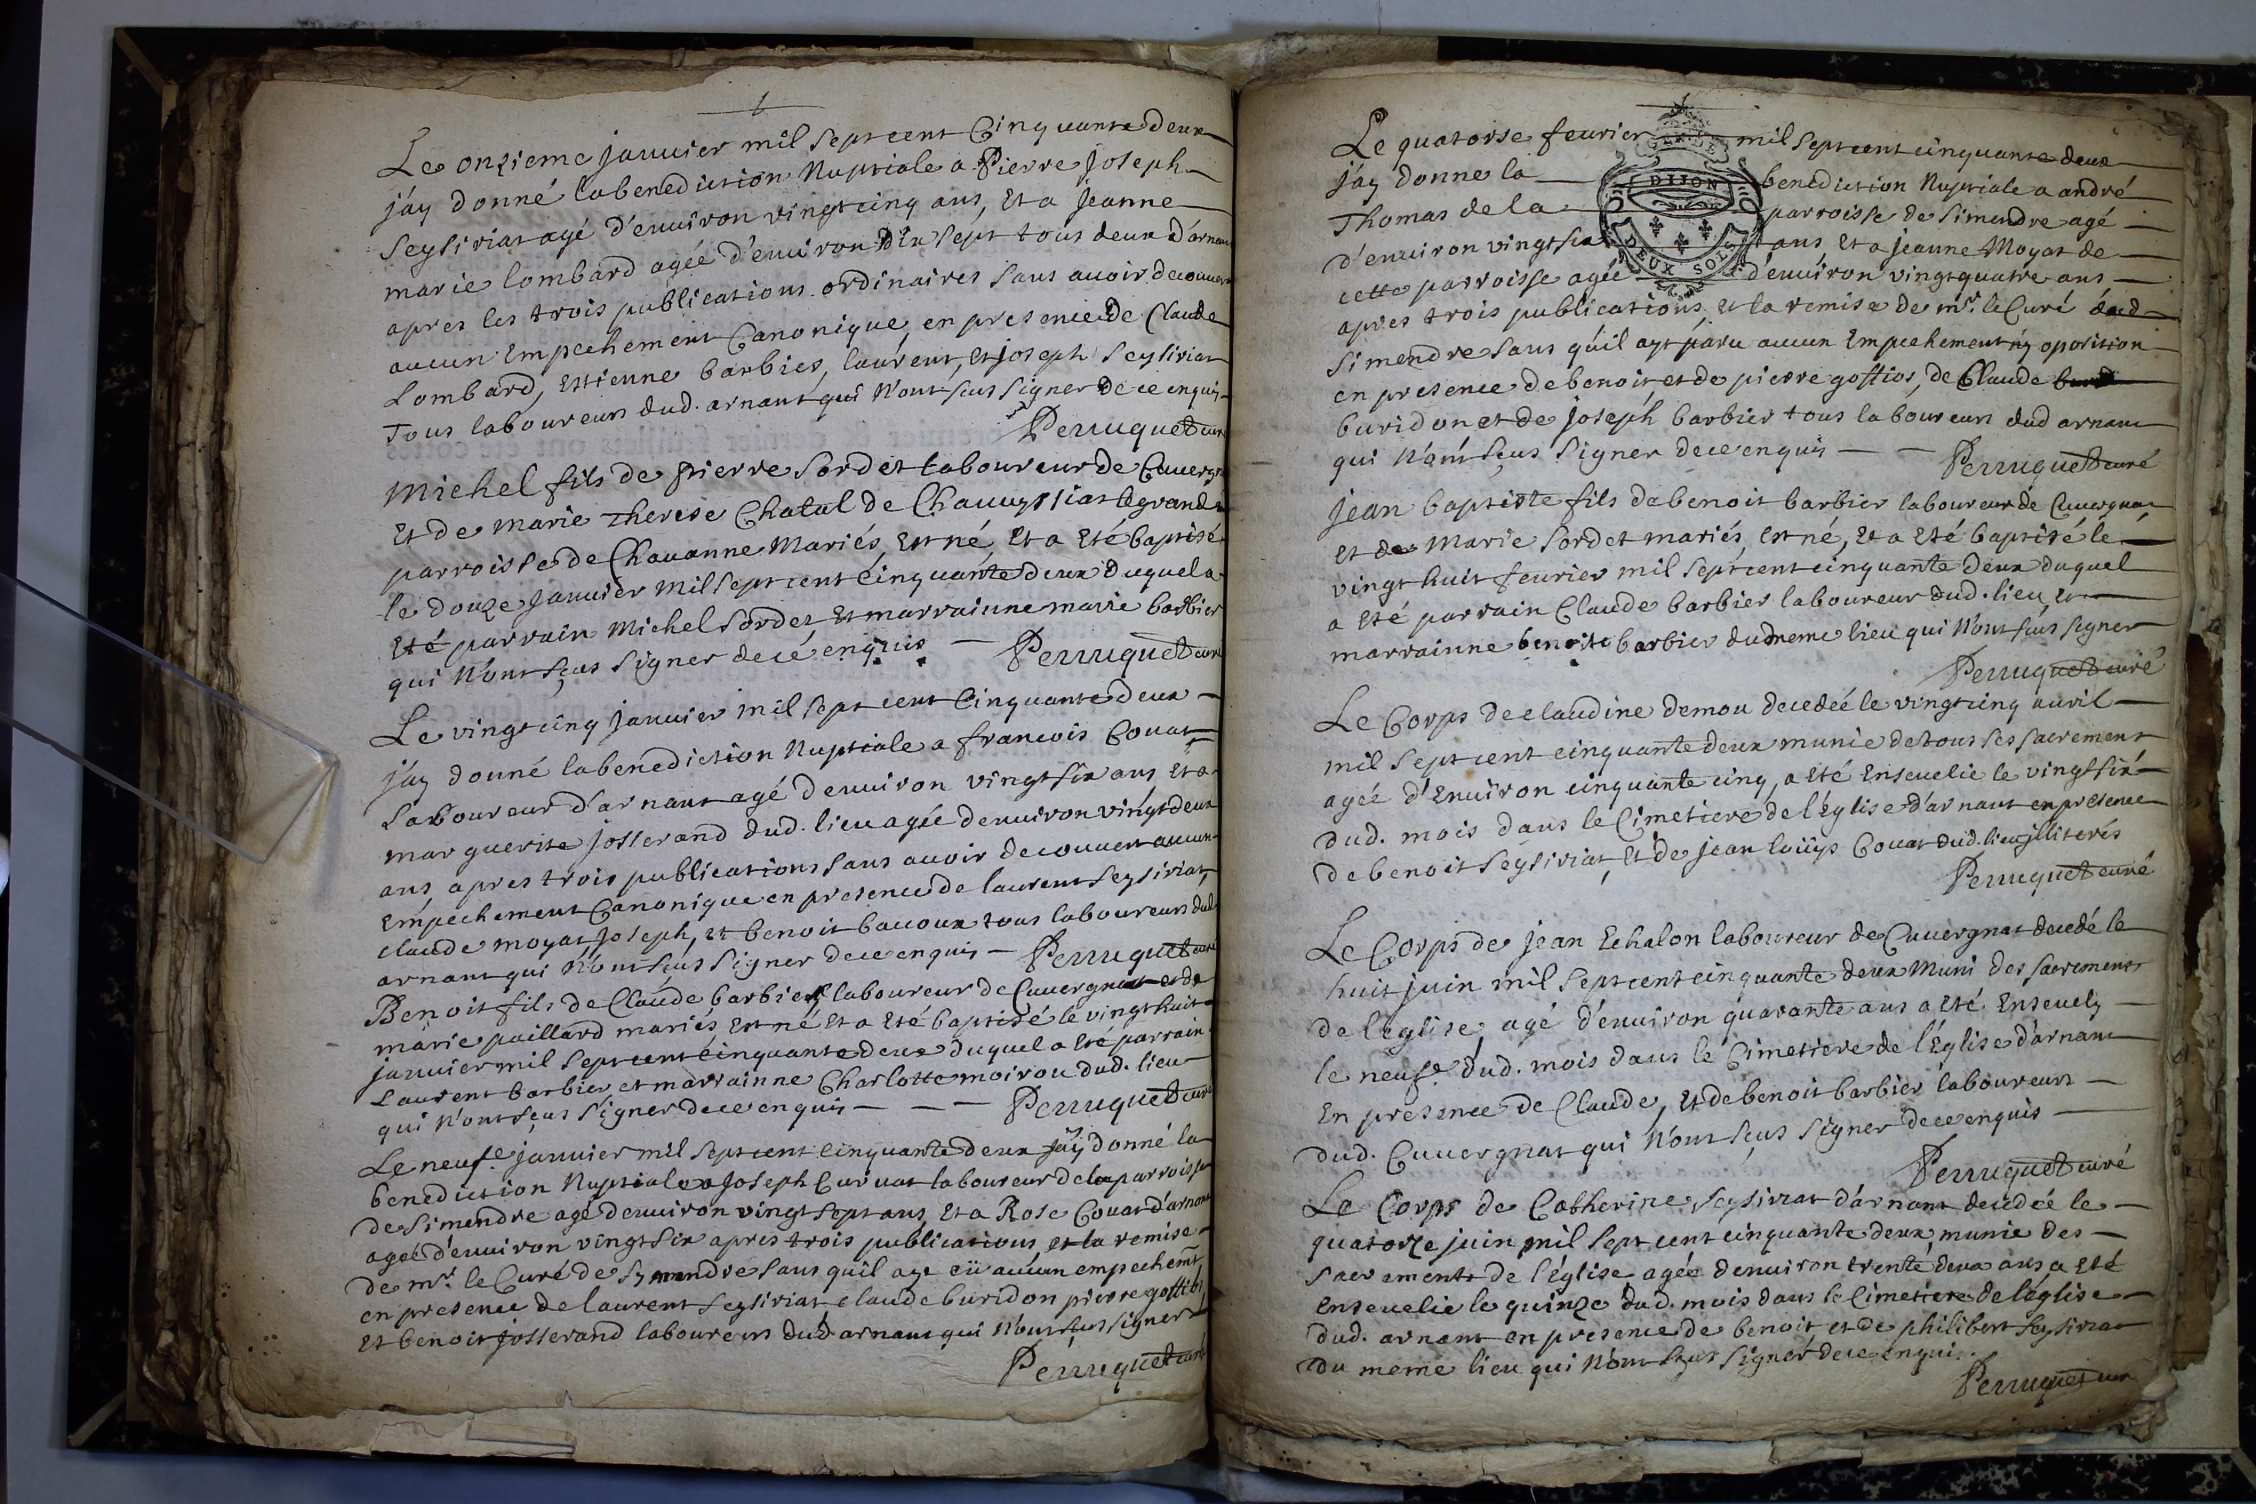 Le onzieme janvier mil sept cent Cinquante deux
j'ay donné la benediction Nuptiale a Pierre Joseph
Seysiriat agé d'environ vingt cinq ans, Et a Jeanne
marie lombard agée d'environ dix sept tous deux d'arnan
apres les trois publications ordinaires sans avoir decouver
aucun Empechement Canonique, en presence de Claude
Lombard, Estienne barbier, laurent, et joseph Seysiriat
Tous laboureurs dud. arnant qui N'ont sçus signer de ce enquis
Perruquet curé
Michel fils de Pierre Sordet laboureur de Cuvergn
Et de Marie Therese Chatal de Chavuyssiat le grand
parroisse de Chavanne Mariés, Est né, Et a Eté baptisé
le douze Janvier mil sept cent Cinquante deux duquel a
Eté parrain Michel Sordet, Et marrainne marie barbier
qui N'ont sçus signer de cé enquis Perruquet curé
Le vingt cinq janvier mil sept cent Cinquante deux
j'ay donné la benediction Nuptiale a francois Couat
Laboureur d'arnant agé d'environ vingt six ans, Et a
marguerite josserand dud. lieu agée d'environ vingt deux
ans apres trois publications sans avoir decouvert aucun
Empechement Canonique en presence de laurent Seysiriat,
claude moyat, Joseph, et benoit bacoux tous laboureurs dud.
arnant qui N'ont sçus signer de ce enquis Perruquet curé
Benoit fils de Claude barbier laboureur de Cuvergnat et de
marie paillard mariés Est né Et a Eté baptisé le vingt huit
janvier mil sept cent cinquante deux duquel a Eté parrain
Laurent barbier et marrainne Charlotte moirou dud. lieu
qui N'ont sçus signer de ce enquis Perruquet curé
Le neuf.e janvier mil sept cent cinquante deux j'ay donné la
benediction Nuptiale a Joseph Curvat laboureur de la parroisse
de Simendre agé d'environ vingt sept ans, Et a Rose Couat d'arnant
agée d'environ vingt six apres trois publications, et la remise
de mr. le Curé de Symendre sans quil ayt eü aucun empechemt,
en presence de laurent Seysiriat claude buridon pierre gostios,
Et benoit josserand laboureurs dud arnant qui N'ont sçus signer
Perruquet curé
Le quatorse fevrier mil sept cent cinquante deux
j'ay donne la benediction Nuptiale a andré
Thomas de la parroisse de Simendre agé
d'environ vingt six ans, Et a jeanne Moyat de
cette parroisse agée d'environ vingt quatre ans
GEN. DE
DIJON
DEUX SOLS
apres trois publications, et la remise de mr. le Curé
Simendre sans qu'il ayt paru aucun Empechement ny oposition
en presence de benoit et de pierre gostios, de Claude
buridon et de joseph barbier tous laboureurs dud arnant
qui N'ont sçus signer de ce enquis Perruquet curé
Jean baptiste fils de benoit barbier laboureur de Cuvergnat
et de Marie Sordet mariés, est né, Et a Eté baptisé le
vingt huit fevrier mil sept cent cinquante deux duquel
a Eté parrain Claude barbier laboureur dud. lieu, et
marrainne benoite barbier dud meme lieu qui N'ont sçus signer
Perruquet curé
Le Corps de claudine demou decedeé le vingt cinq avril
mil sept cent cinquante deux munie de tous ses sacrement
agée d'Environ cinquante cinq, a Eté Ensevelie le vingt six
dud. mois dans le Cimetiere de l'église d'arnant en presence
de benoit Seysiriat, Et de jean loüys Couat dud. lieu illiterés
Perruquet curé
Le Corps de Jean Echalon laboureur de Cuvergnat decedé le
huit juin mil sept cent cinquante deux Muni des sacrements
de l'eglise, agé d'environ quarante ans a Eté Ensevely
le neuf.e dud. mois dans le Cimetiere de l'Eglise d'arnant
En presence de Claude, Et de benoit barbier laboureurs
dud. Cuvergnat qui N'ont sçus signer de ce enquis
Perruquet curé
Le Corps de Catherine Seysiriat d'arnant decedée le
quatorze juin mil sept cent cinquante deux, munie des
sacrements de l'église agée d'environ trente deux ans, a Eté
ensevelie le quinze dud. mois dans le Cimetiere de l'église
dud. arnant en presence de benoit, et de philibert Seysiriat
du meme lieu qui N'ont sçus signer de ce enquis.
Perruquet curé